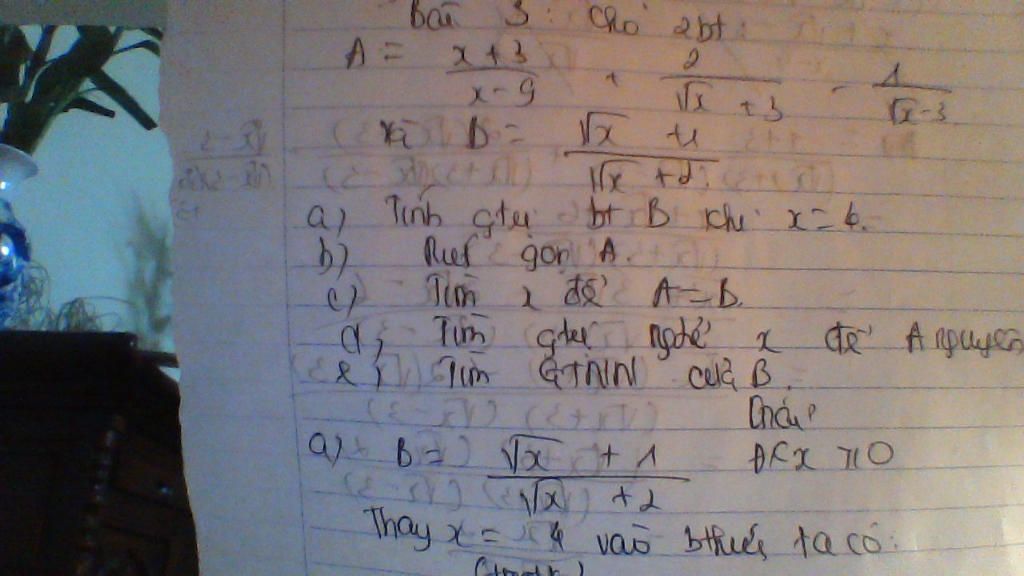 Bài 3: Cho 2bt:
A = x+3/x-9 + 2/√x+3 - 1/√x-3
và B = √x +1/√x +2
a) Tính gtrị bt B khi x=4.
b) Rút gọn A.
c) Tìm x để A=B.
d, Tìm gtrị nghế x để A nguyên
e, Tìm GTNN của B.
a) B = √x +1/√x +2 ĐK x ≥ 0
Thay x = 4 vào bthức, ta có: